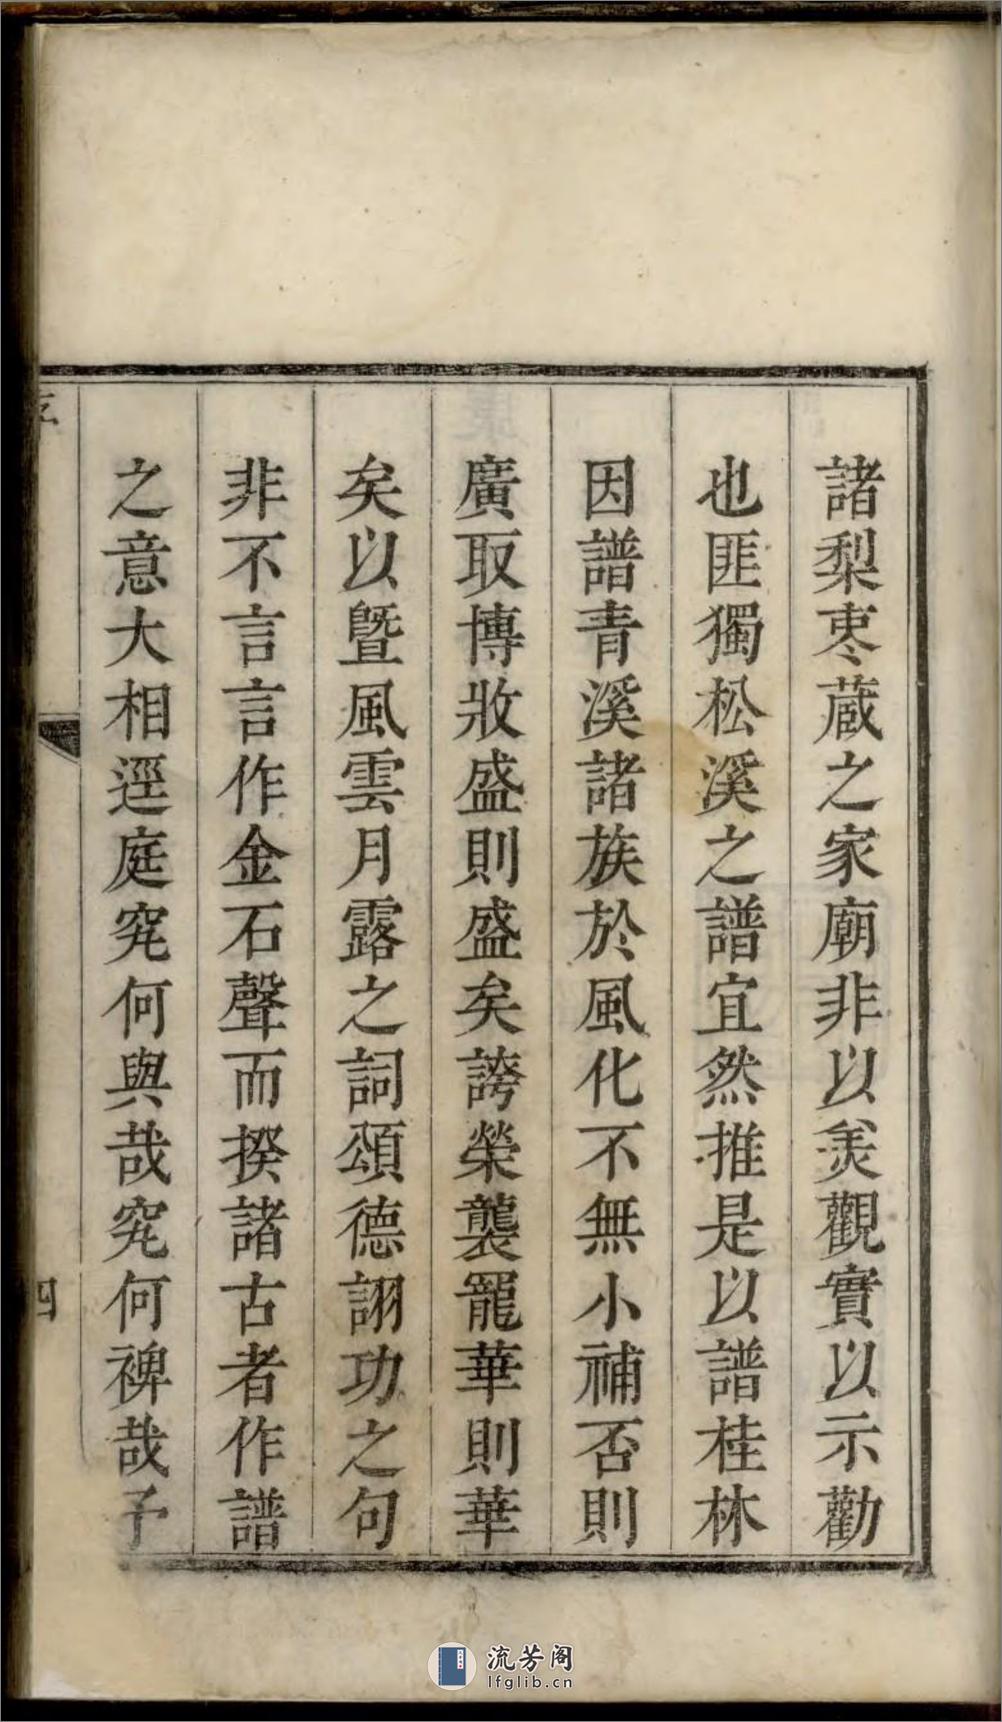 諸梨枣蔵之家廟非以羙觀實以示勸
也匪獨松溪之譜宜然推是以譜桂林
因譜青溪諸族於風化不無小補否則
廣取博收盛則盛矣誇榮襲寵華則華
矣以曁風雲月露之詞頌德詡功之句
非不言言作金石聲而揆諸古者作譜
之意大相逕庭究何與哉究何裨哉予
序
四
流芳阁
lfglib.cn